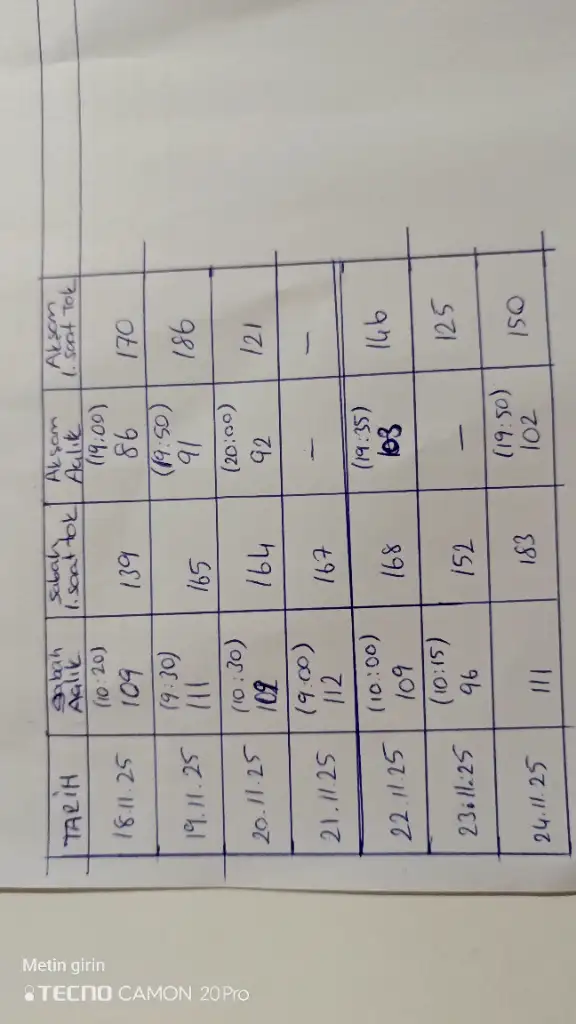 TARİH Sabah Açlık Sabah 1. saat tok Akşam Açlık Akşam 1. saat tok
18.11.25 (10:20) 109 139 (19:00) 86 170
19.11.25 (9:30) 111 165 (19:50) 91 186
20.11.25 (10:30) 109 164 (20:00) 92 121
21.11.25 (9:00) 112 167 — —
22.11.25 (10:00) 109 168 (19:35) 103 146
23.11.25 (10:15) 96 152 — 125
24.11.25 111 183 (19:50) 102 150
Metin girin
TECNO CAMON 20 Pro